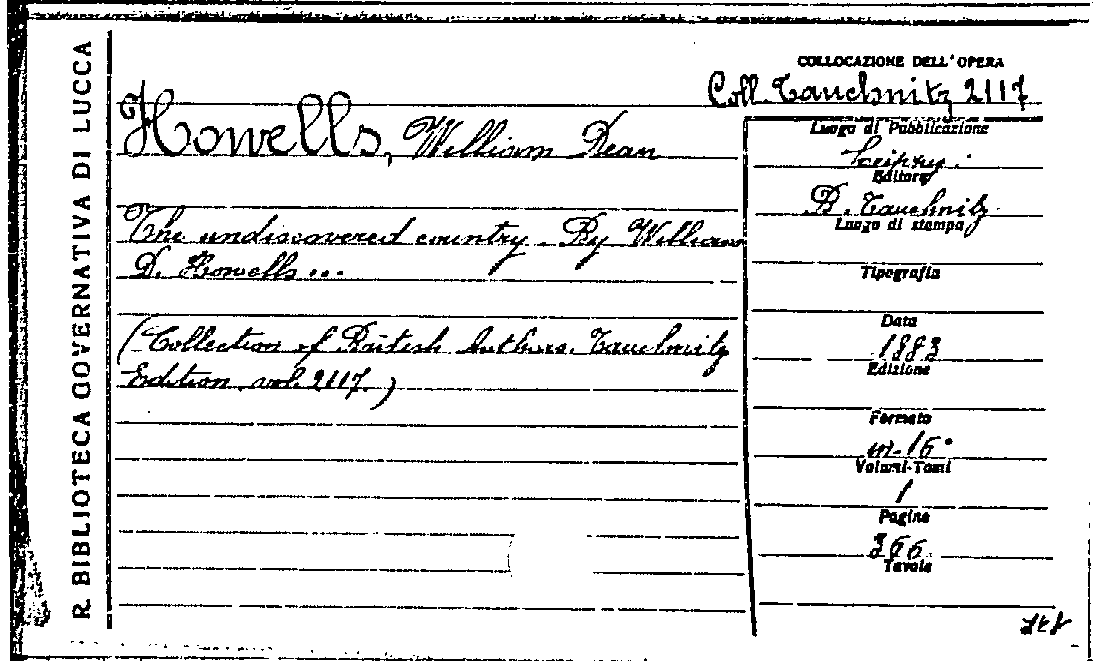 R. BIBLIOTECA GOVERNATIVA DI LUCCA
COLLOCAZIONE DELL'OPERA
Coll. Tauchnitz 2117
Howells, William Dean
The undiscovered country. By William
D. Howells...
(Collection of British Authors. Tauchnitz
Edition. vol. 2117.)
Luogo di Pubblicazione
Leipzig.
Editore
B. Tauchnitz
Luogo di stampa
Tipografia
Data
1883
Edizione
Formato
in-16°
Volumi-Tomi
1
Pagine
366.
Tavole